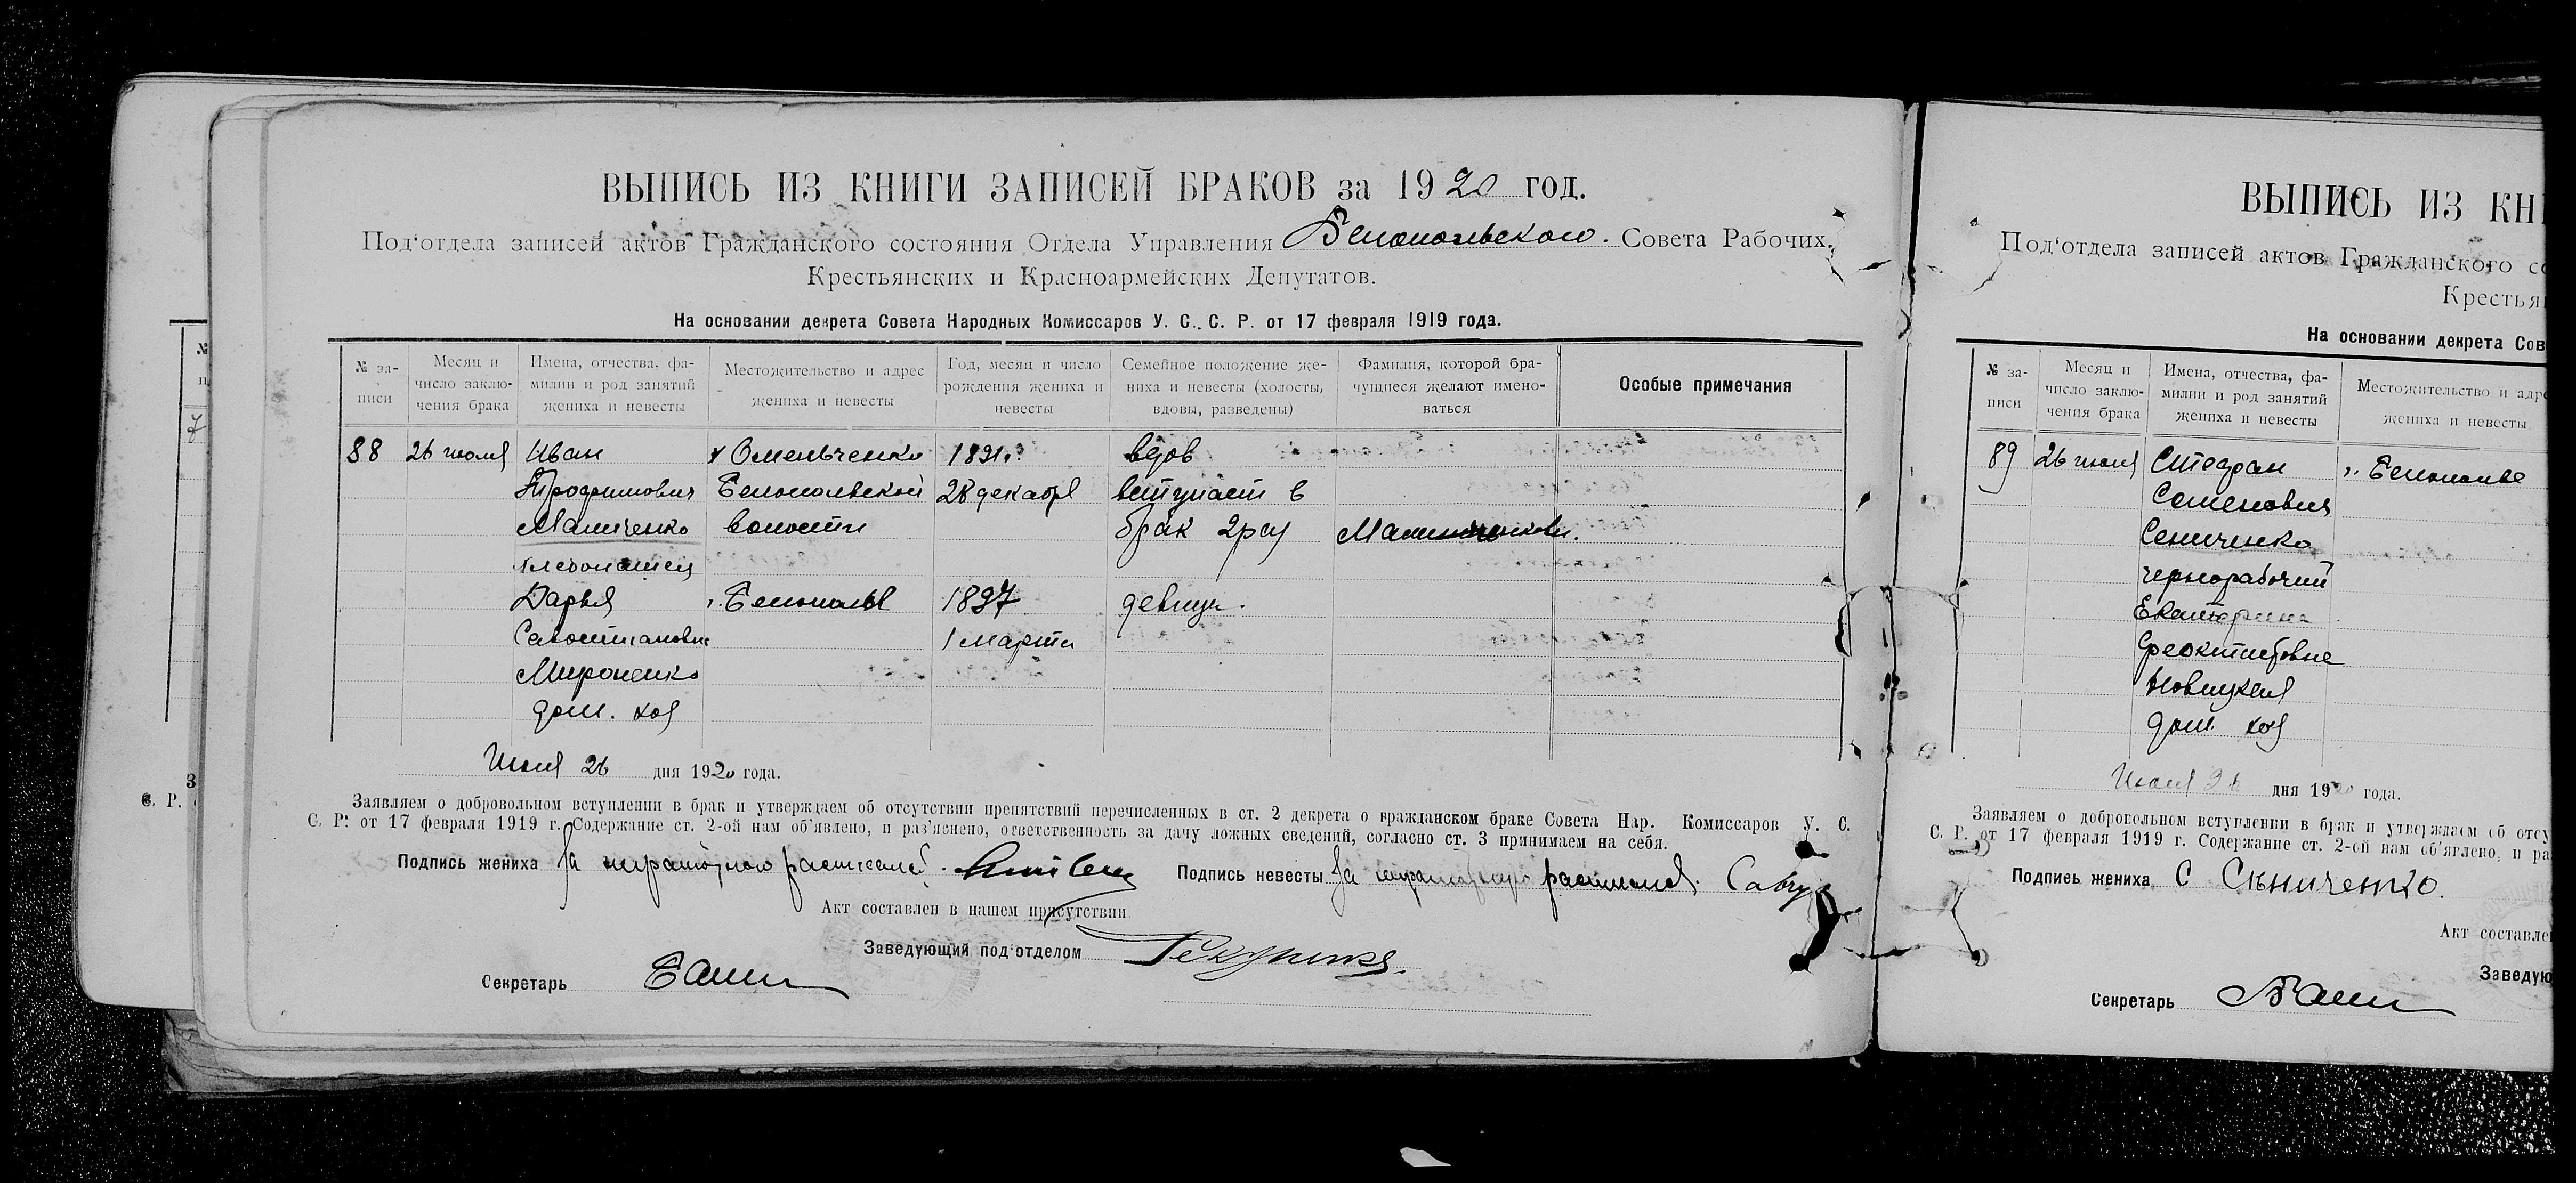 ВЫПИСЬ ИЗ КНИГИ ЗАПИСЕЙ БРАКОВ за 1920 год.
Под'отдела записей актов Гражданского состояния Отдела Управления Белопольского Совета Рабочих,
Крестьянских и Красноармейских Депутатов.
На основании декрета Совета Народных Комиссаров У. С. С. Р. от 17 февраля 1919 года.
№ записи
Месяц и число заключения брака
Имена, отчества, фамилии и род занятий жениха и невесты
Местожительство и адрес жениха и невесты
Год, месяц и число рождения жениха и невесты
Семейное положение жениха и невесты (холосты, вдовы, разведены)
Фамилия, которой брачущиеся желают именоваться
Особые примечания
88 26 июля Иван Омельченко 1891 вдов
Трофимович Белопольской 28 декабря вступает в
Маличенко волости брак 2 раз
хлебопашец
Дарья Белополье 1897 девица
1 марта
Мироненко
дом. хоз
Июля 26 дня 1920 года.
Заявляем о добровольном вступлении в брак и утверждаем об отсутствии препятствий перечисленных в ст. 2 декрета о гражданском браке Совета Нар. Комиссаров У. С.
С. Р. от 17 февраля 1919 г. Содержание ст. 2-ой нам об'явлено, и раз'яснено, ответственность за дачу ложных сведений, согласно ст. 3 принимаем на себя.
Подпись жениха За неграмотного расписался
Подпись невесты За неграмотную расписался
Акт составлен в нашем присутствии
Заведующий под'отделом
Секретарь
ВЫПИСЬ ИЗ КН
Под'отдела записей актов Гражданского со
Крестья
На основании декрета Сов
№ записи
Месяц и число заключения брака
Имена, отчества, фамилии и род занятий жениха и невесты
Местожительство и адре
жениха и невесты
89 26 июля Стефан Белополье
Семенович
Сениченко
чернорабочий
Екатерина
Феоктистовна
Новицкая
дом. хоз
Июля 26 дня 1920 года.
Заявляем о добровольном вступлении в брак и утверждаем об отсу
С. Р. от 17 февраля 1919 г. Содержание ст. 2-ой нам об'явлено, и ра
Подпись жениха С Сѣниченко.
Акт составле
Заведую
Секретарь